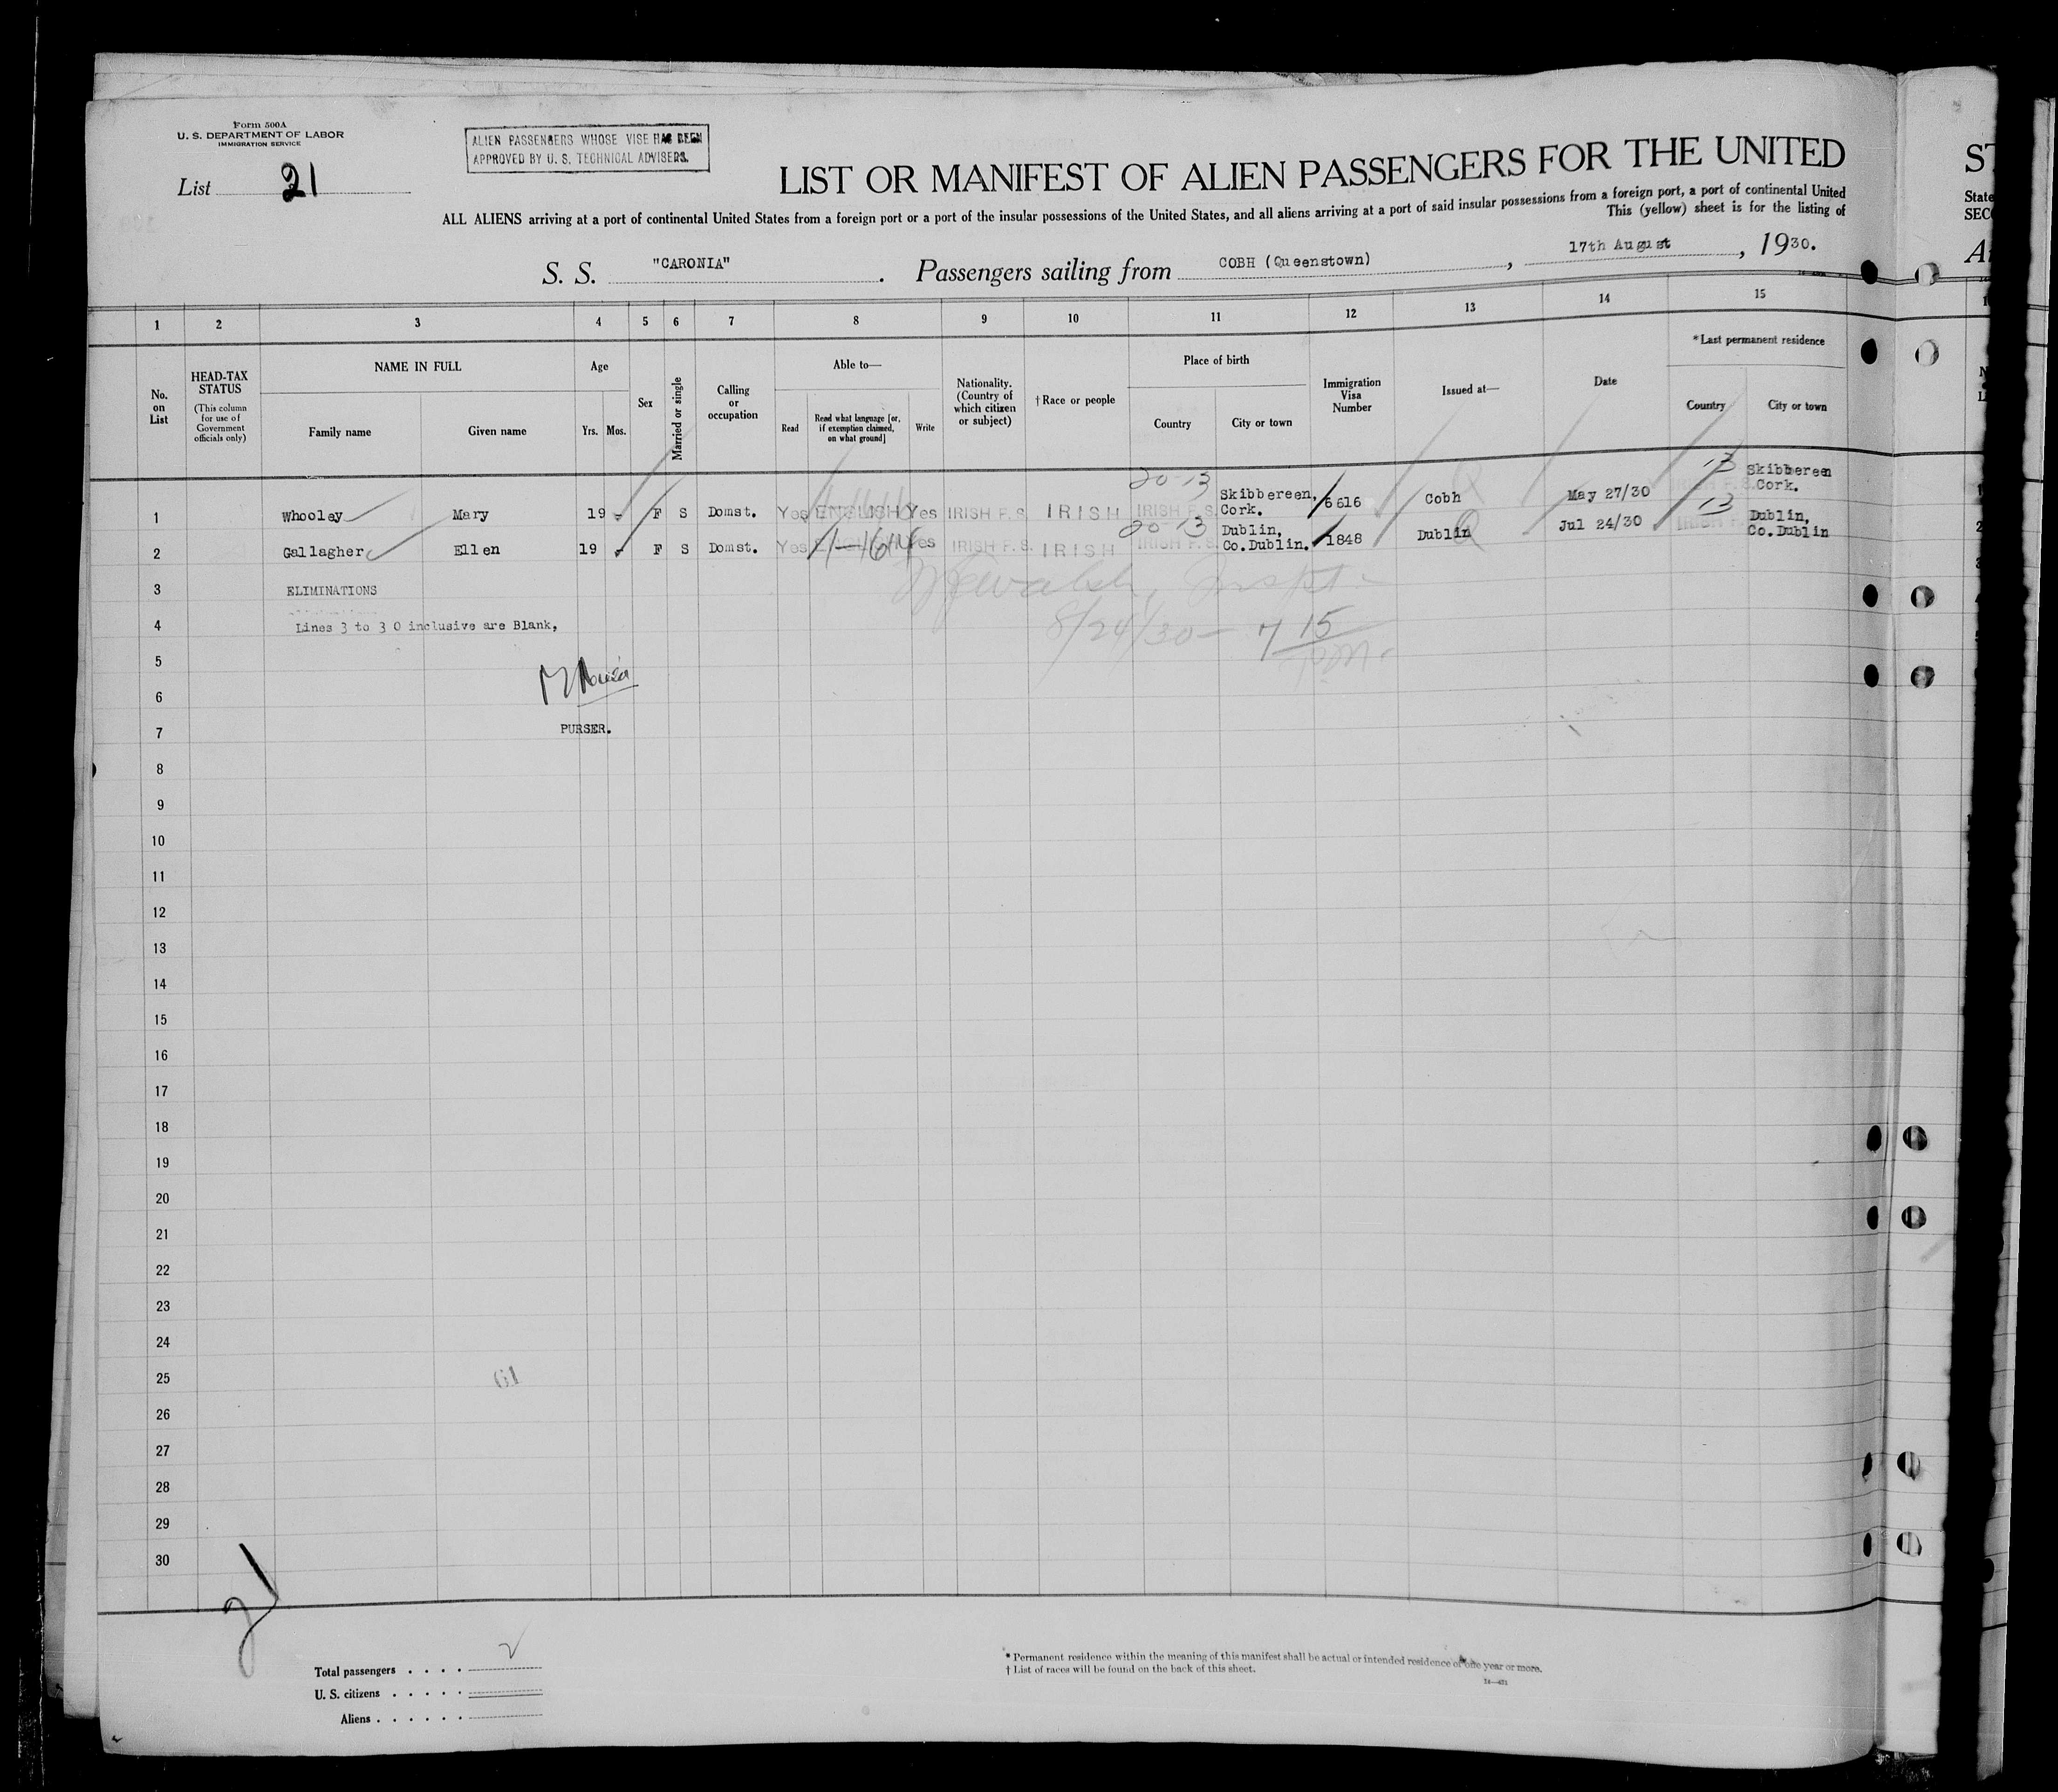 Form 500A
U. S. DEPARTMENT OF LABOR
IMMIGRATION SERVICE
List 21
ALIEN PASSENGERS WHOSE VISE HAS BEEN
APPROVED BY U. S. TECHNICAL ADVISERS.
LIST OR MANIFEST OF ALIEN PASSENGERS FOR THE UNITED
ALL ALIENS arriving at a port of continental United States from a foreign port or a port of the insular possessions of the United States, and all aliens arriving at a port of said insular possessions from a foreign port, a port of continental United
This (yellow) sheet is for the listing of
S. S. "CARONIA". Passengers sailing from COBH (Queenstown), 17th August, 1930.
ST
State
SEC
1 2 3 4 5 6 7 8 9 10 11 12 13 14 15
No. on List
HEAD-TAX STATUS
(This column for use of Government officials only)
NAME IN FULL
Family name Given name
Age
Yrs. Mos.
Sex
Married or single
Calling or occupation
Able to—
Read
Read what language [or, if exemption claimed, on what ground]
Write
Nationality. (Country of which citizen or subject)
† Race or people
Place of birth
Country City or town
Immigration Visa Number
Issued at—
Date
* Last permanent residence
Country City or town
20-13 13
1 Whooley Mary 19 - F S Domst. Yes ENGLISH Yes IRISH F.S. IRISH IRISH F.S. Skibbereen, Cork. 6616 Cobh May 27/30 IRISH F.S. Skibbereen Cork.
20-13 13
2 Gallagher Ellen 19 - F S Domst. Yes Yes IRISH F.S. IRISH IRISH F.S. Dublin, Co.Dublin. 1848 Dublin Jul 24/30 IRISH Dublin, Co.Dublin
3 ELIMINATIONS
4 Lines 3 to 30 inclusive are Blank,
8/24/30 - 7 15 pm.
5
6
7 PURSER.
8
9
10
11
12
13
14
15
16
17
18
19
20
21
22
23
24
25
61
26
27
28
29
30
21
Total passengers . . . . 2
U. S. citizens . . . . .
Aliens . . . . . .
* Permanent residence within the meaning of this manifest shall be actual or intended residence of one year or more.
† List of races will be found on the back of this sheet.